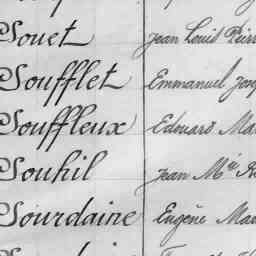 Souet Jean Louis Pierr
Soufflet Emmanuel Jos
Souffleux Edouard Mar
Souhil Jean Mie
Sourdaine Eugène Mar